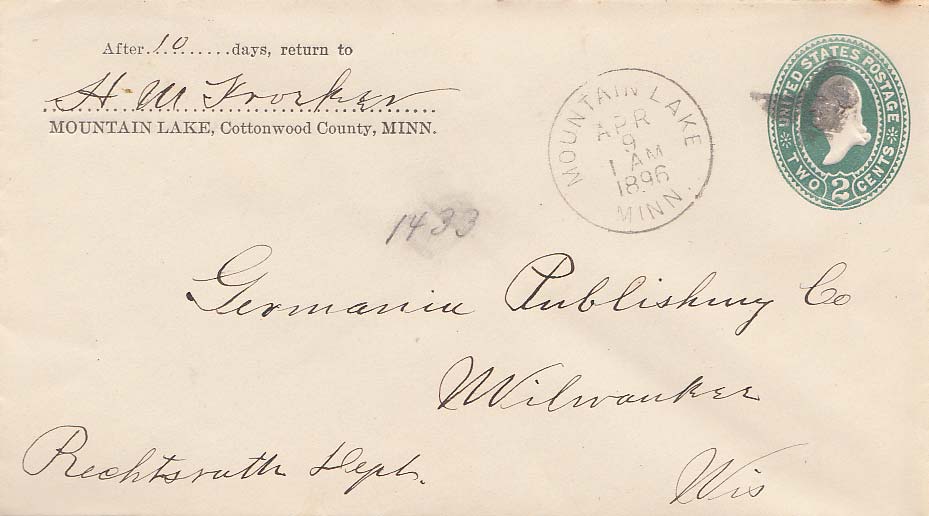 After 10 days, return to
H M Froeker
MOUNTAIN LAKE, Cottonwood County, MINN.
MOUNTAIN LAKE
APR
9
1 AM
1896
MINN.
UNITED STATES POSTAGE
TWO 2 CENTS
1433
Germania Publishing Co
Milwaukee
Wis
Rechtsrath Dept.